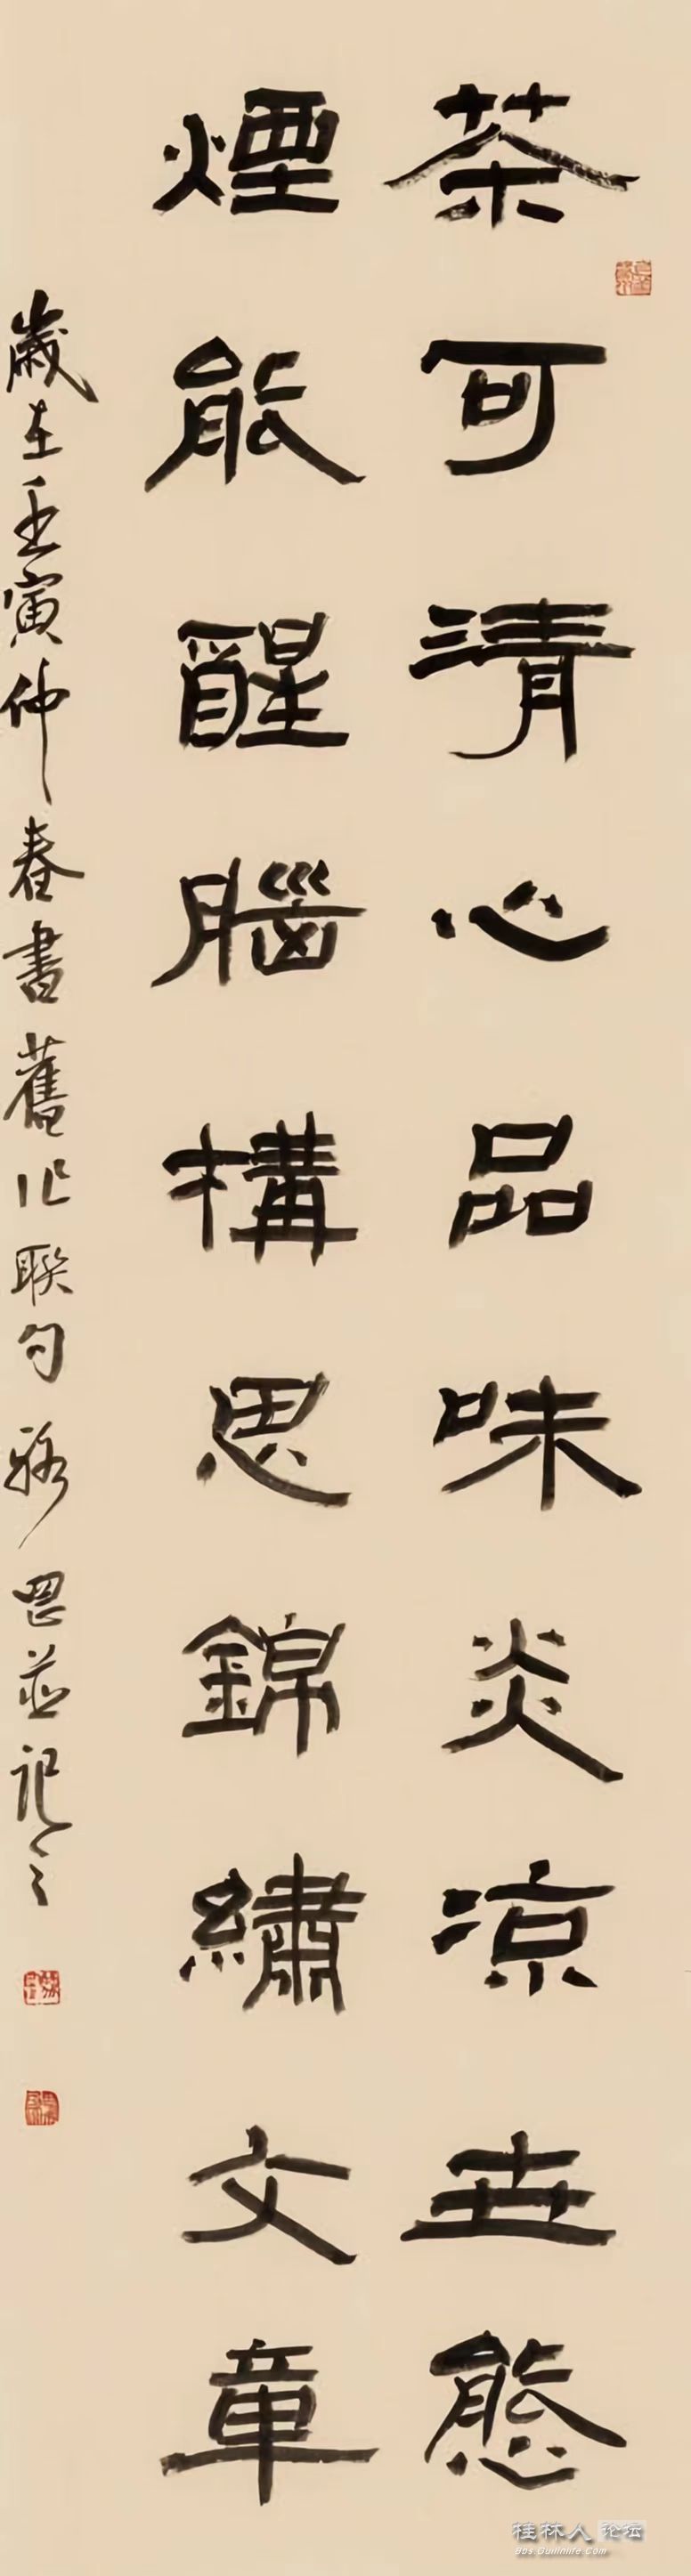 茶可清心品味炎凉世態
煙能醒腦構思錦繡文章
歲在壬寅仲春書舊作聯句 並記之
桂林人论坛
bbs.Guilinlife.com